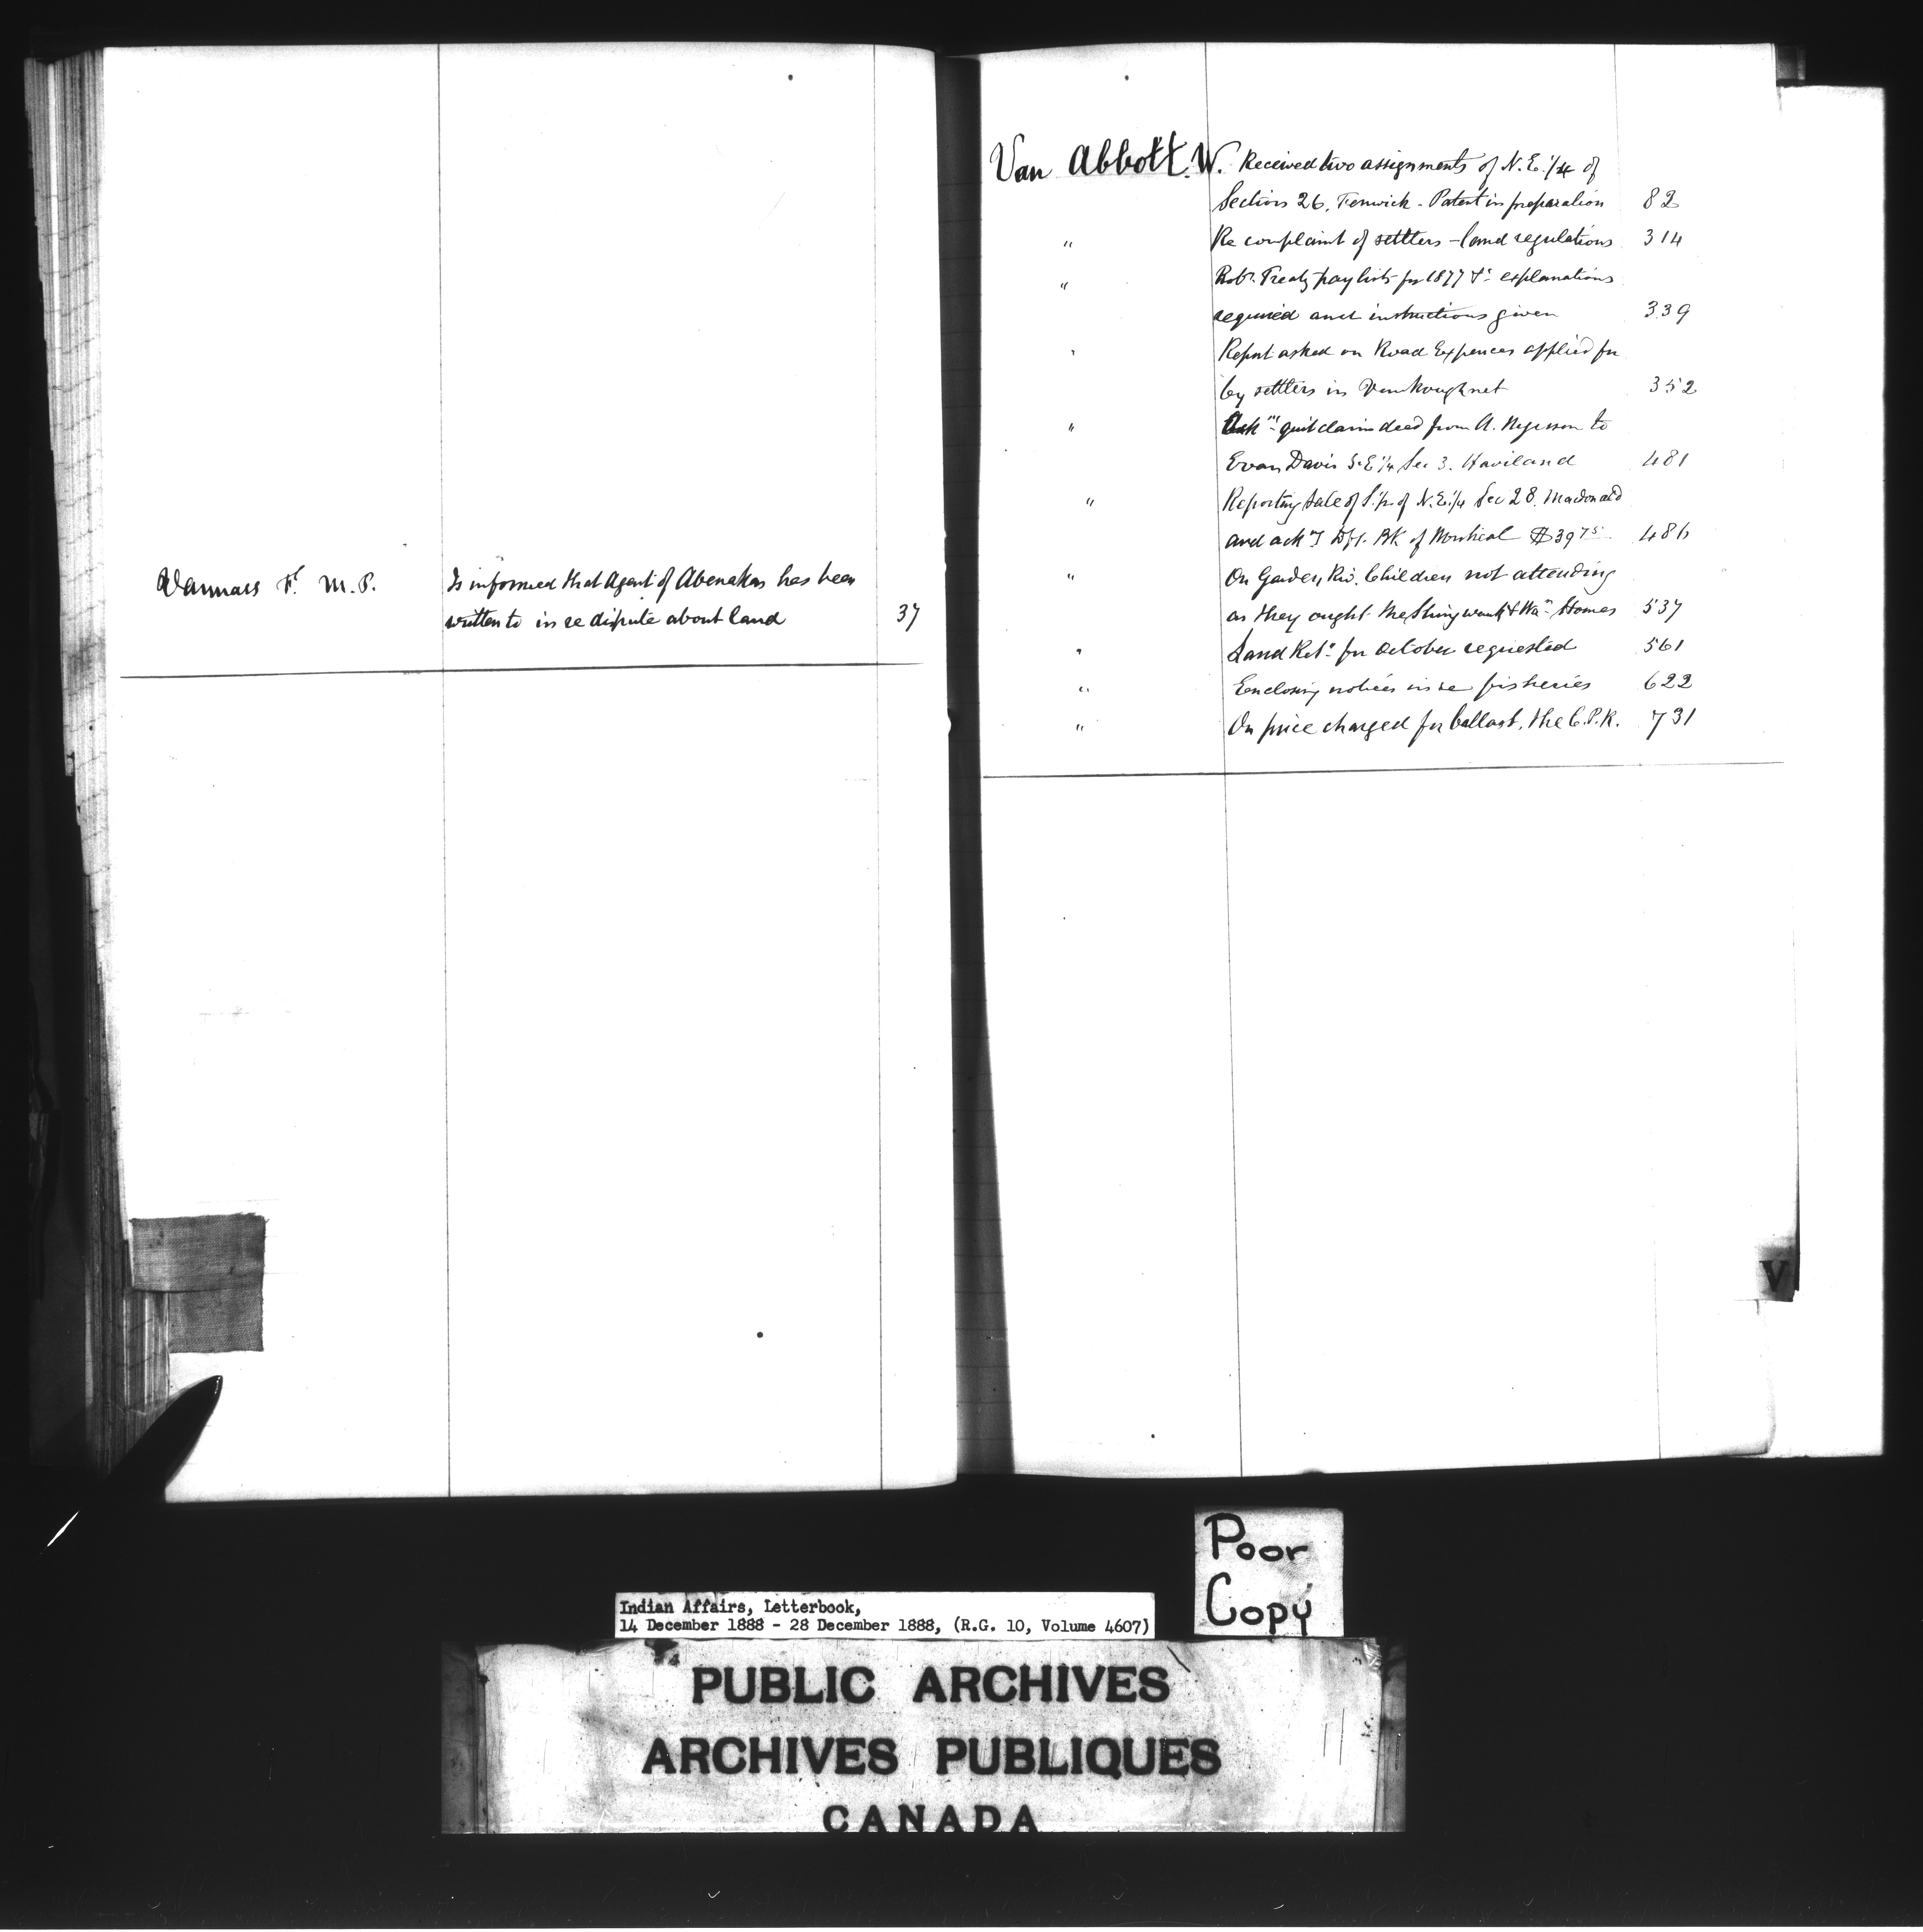 Vannass Fd. M.P. Is informed that Agent of Abenakas has been
written to in re dispute about land 37
Van Abbott. W. Received two assignments of N.E. 1/4 of
Section 26, Fenwick - Patent in preparation 82
" Re complaint of settlers - land regulations 314
" Robn. Treaty pay lists for 1877 explanations
required and instructions given 339
" Report asked on Road Expences applied for
by settlers in Vankoughnet 352
" Ack quit claim deed from A. to
Evan Davis S.E 1/4 Sec 3. Haviland 481
" Reporting sale of S. 1/2 of N.E. 1/4 Sec 28. Macdonald
and ackg Dft. BK of Montreal $39 75 486
" On Garden Riv. Children not attending
as they ought the Shingwauk & Wa Homes 537
" Land Retn for October requested 561
" Enclosing notices in re fisheries 622
" On price charged for ballast, the C.P.R. 731
V
Poor
Copy
Indian Affairs, Letterbook,
14 December 1888 - 28 December 1888, (R.G. 10, Volume 4607)
PUBLIC ARCHIVES
ARCHIVES PUBLIQUES
CANADA